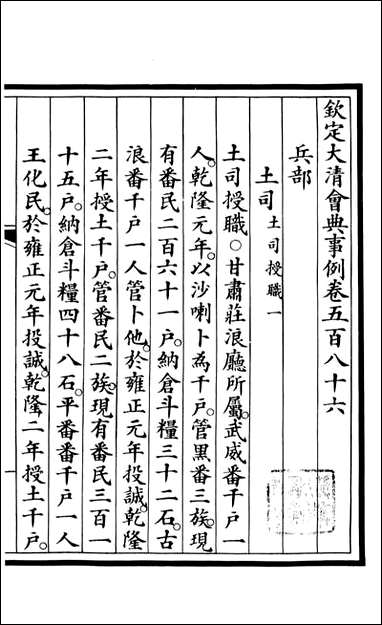 欽定大清會典事例卷五百八十六
兵部
土司土司授職一
土司授職○甘肅莊浪廳所屬武威番千戶一
人。乾隆元年。以沙喇卜為千戶。管黑番三族。現
有番民二百六十一戶。納倉斗糧三十二石。古
浪番千戶一人管卜他。於雍正元年投誠。乾隆
二年授土千戶。管番民二族。現有番民三百一
十五戶。納倉斗糧四十八石。平番番千戶一人
王化民。於雍正元年投誠。乾隆二年授土千戶。